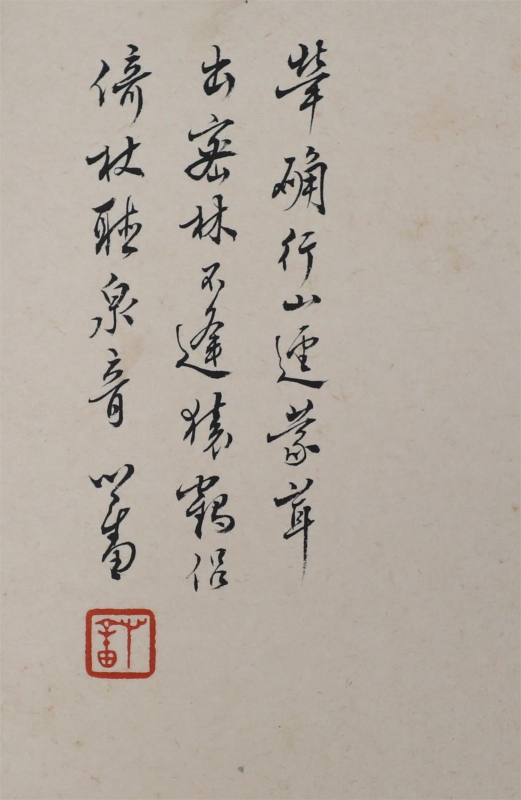 犖确行山逕蒙茸
出密林不逢猿鶴侶
倚杖聽泉音 心畬